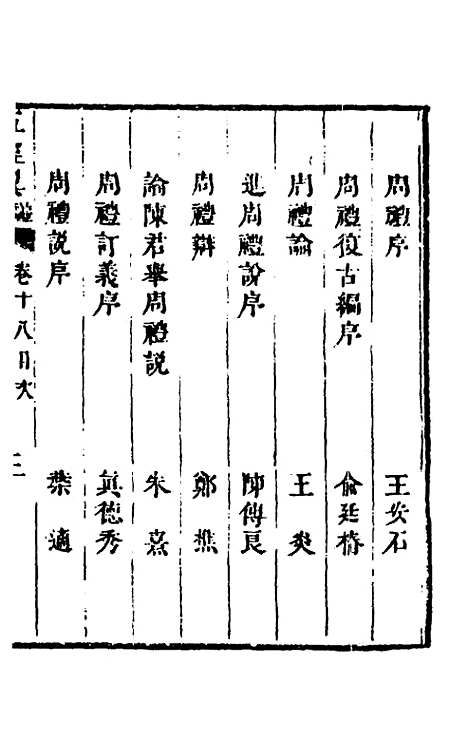 周禮序 王安石
周禮復古編序 俞廷椿
周禮論 王炎
進周禮說序 陳傅良
周禮辯 鄭樵
論陳君舉周禮説 朱熹
周禮訂義序 眞德秀
周禮説序 葉適
卷十八目次